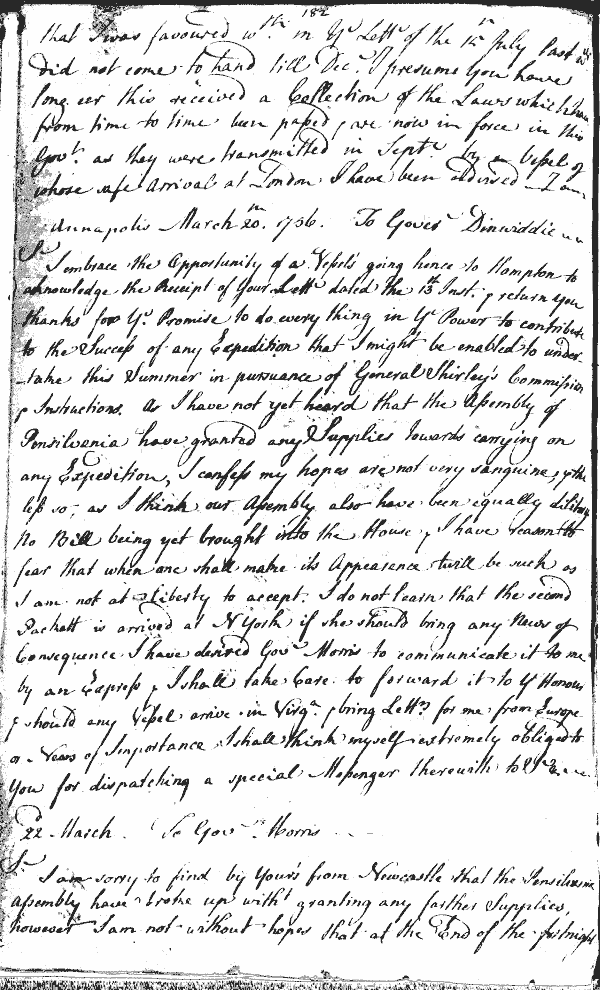 182
that I was favoured wth. in Yr Lettr of the 12th July last
did not come to hand till Decr. I presume you have
long eer this received a Collection of the Laws which have
from time to time been passed & are now in force in this
Govt. as they were transmitted in Septr. by a Vessel of
whose safe Arrival at London I have been advised I am
Annapolis March 20th. 1756. To Goverr Dinwiddie
Sr
I embrace the Opportunity of a Vessels going hence to Hampton to
acknowledge the Receipt of Your Lettr dated the 13th Inst. & return you
thanks for Yr. Promise to do every thing in Yr Power to contribute
to the Success of any Expedition that I might be enabled to under-
-take this Summer in pursuance of General Shirley's Commission
& Instructions. As I have not yet heard that the Assembly of
Pensilvania have granted any Supplies towards carrying on
any Expedition, I confess my hopes are not very sanguine, & the
less so, as I think our Assembly also have been equally dilatory
No Bill being yet brought into the House, & I have reason to
fear that when one shall make its Appearance twill be such as
I am not at Liberty to accept. I do not learn that the second
Packett is arrived at N York if she should bring any News of
Consequence I have desired Govr Morris to communicate it to me
by an Express & I shall take Care to forward it to Yr Honour
& should any Vessel arrive in Virga. & bring Lettrs for me from Europe
or News of Importance I shall think myself extremely obliged to
You for dispatching a special Messenger therewith to Yr
22d March. To Govr. Morris
Sr
I am sorry to find by Your's from Newcastle that the Pensilvania
Assembly have broke up witht granting any farther Supplies,
however I am not without hopes that at the End of the fortnight